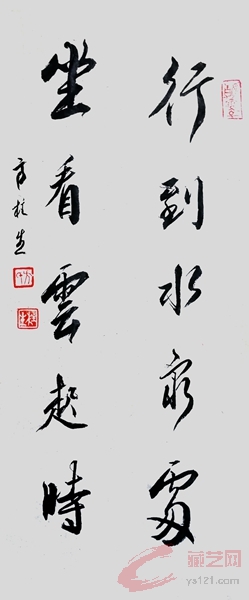 行到水窮處
坐看雲起時
藏艺网
ys121.com